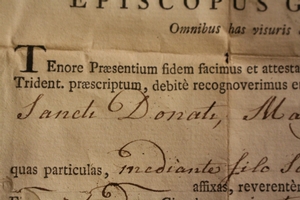 EPISCOPUS G
Omnibus has visuris
Tenore Præsentium fidem facimus et attesta
Trident. præscriptum, debitè recognoverimus e
Sancti Donati, Ma
quas particulas, mediante filo
affixas, reverentèr